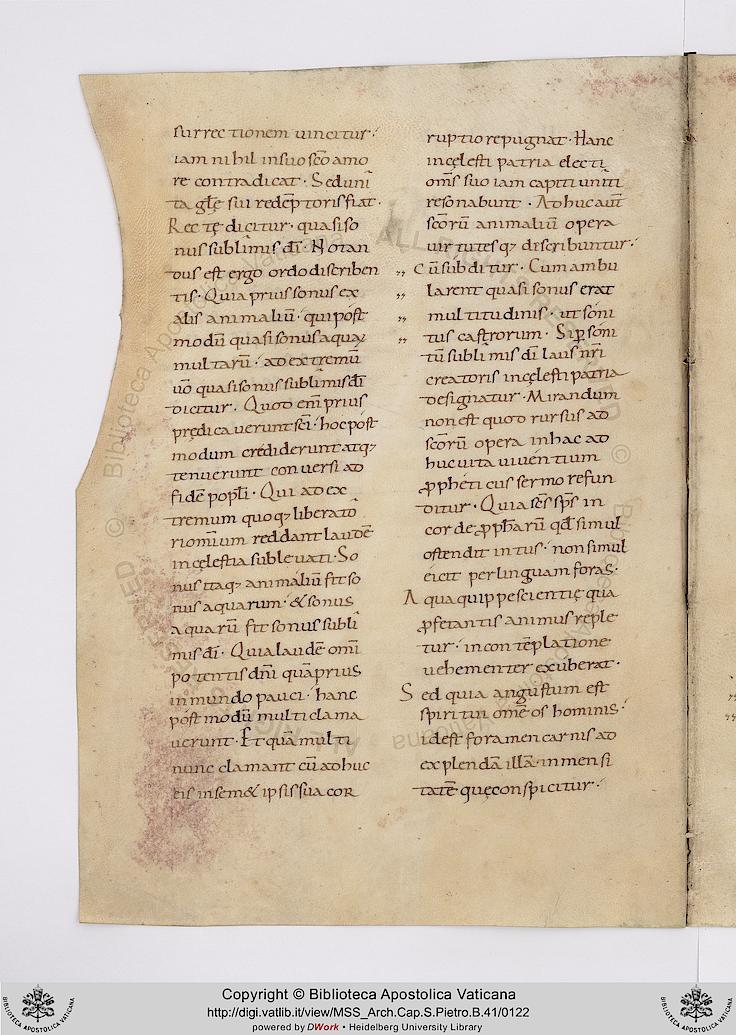 surrectionem uincitur·
iam nihil insuo sc̄o amo
re contradicat· Seduni
ta gl̄ę sui redēptoris fiat·
Rectę dicitur· quasi so
nus sublimis dī· Notan
dus est ergo ordo discriben
tis· Quia prius sonus ex
alis animaliū· qui post
modū quasi sonus aquaꝝ
multarū· ad extremū
uō quasi sonus sublimis dī
dicitur· Quod enī prius
prędicauerunt sc̄i· hoc post
modum crediderunt atqꝫ
tenuerunt conuersi ad
fidē popl̄i· Qui ad ex
tremum quoqꝫ liberatō
ri omnium reddant laudē
incęlestia subleuati· So
nus itaqꝫ animaliū fit so
nus aquarum· & sonus
aquarū fit sonus subli
mis dī· Quia laudē omni
potentis dn̄i quā prius
in mundo pauci· hanc
post modū multi clama
uerunt· Et quā multi
nunc clamant cū adhuc
eis insem& ipsis sua cor
ruptio repugnat· Hanc
incęlesti patria electi
om̄s suo iam capiti uniti
resonabunt· Adhuc aut̄
sc̄orū animaliū opera
uirtutesqꝫ discribuntur·
,, Cū subditur· Cum ambu
,, larent quasi sonus erat
,, multitudinis· ut soni
,, tus castrorum· Sip̱ soni
tū sublimis dī laus nr̄i
creatoris incęlesti patria
designatur· Mirandum
non est quod rursus ad
sc̄orū opera in hac ad
huc uita uiuentium
ꝓphęticus sermo refun
ditur· Quia sc̄s sp̄s in
corde ꝓph̄arū qd̄ simul
ostendit intus· non simul
eicit per linguam foras·
Aqua quippe scientię qua
ꝓfetantis animus reple
tur· in contēplatione
uehementer exuberat·
Sed quia angustum est
spiritui omē os hominis·
idest foramen carnis ad
explendā illā inmensi
tatē quę conspicitur·
Copyright © Biblioteca Apostolica Vaticana
http://digi.vatlib.it/view/MSS_Arch.Cap.S.Pietro.B.41/0122
powered by DWork • Heidelberg University Library